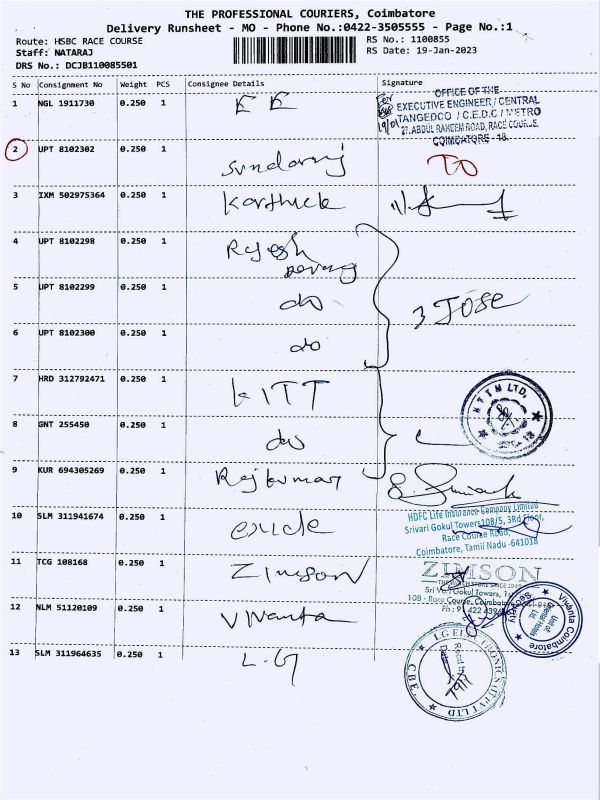 THE PROFESSIONAL COURIERS, Coimbatore
Delivery Runsheet - MO - Phone No.:0422-3505555 - Page No.:1
Route: HSBC RACE COURSE
RS No.: 1100855
Staff: NATARAJ
RS Date: 19-Jan-2023
DRS No.: DCJB110085501
S No Consignment No Weight PCS Consignee Details Signature
1 NGL 1911730 0.250 1 E E
OFFICE OF THE
EXECUTIVE ENGINEER / CENTRAL
TANGEDCO / C.E.D.C / METRO
27, ABDUL RAHEEM ROAD, RACE COURSE,
COIMBATORE - 18.
2 UPT 8102302 0.250 1 Sundarraj
3 IXM 502975364 0.250 1 Karthick
4 UPT 8102298 0.250 1 Rajesh
5 UPT 8102299 0.250 1 do
3 JOSE
6 UPT 8102300 0.250 1 do
7 HRD 312792471 0.250 1 KITT
N T T N LTD.
8 GNT 255450 0.250 1 do
9 KUR 694305269 0.250 1 Rajkumar
10 SLM 311941674 0.250 1 exide
HDFC Life Insurance Company Limited
Srivari Gokul Towers 108/5, 3rd Floor,
Race Course Road,
Coimbatore, Tamil Nadu -641018
11 TCG 108168 0.250 1 Zimson
ZIMSON
THE WATCH STORE SINCE 1948
Sri Vari Gokul Towers, 1st
108 - Race Course, Coimbatore
Ph : 91 422 4394
12 NLM 51120109 0.250 1 Vivanta
Vivanta Coimbatore
Security
13 SLM 311964635 0.250 1 L.G
LG ELECTRONICS (I) PVT LTD
CBE